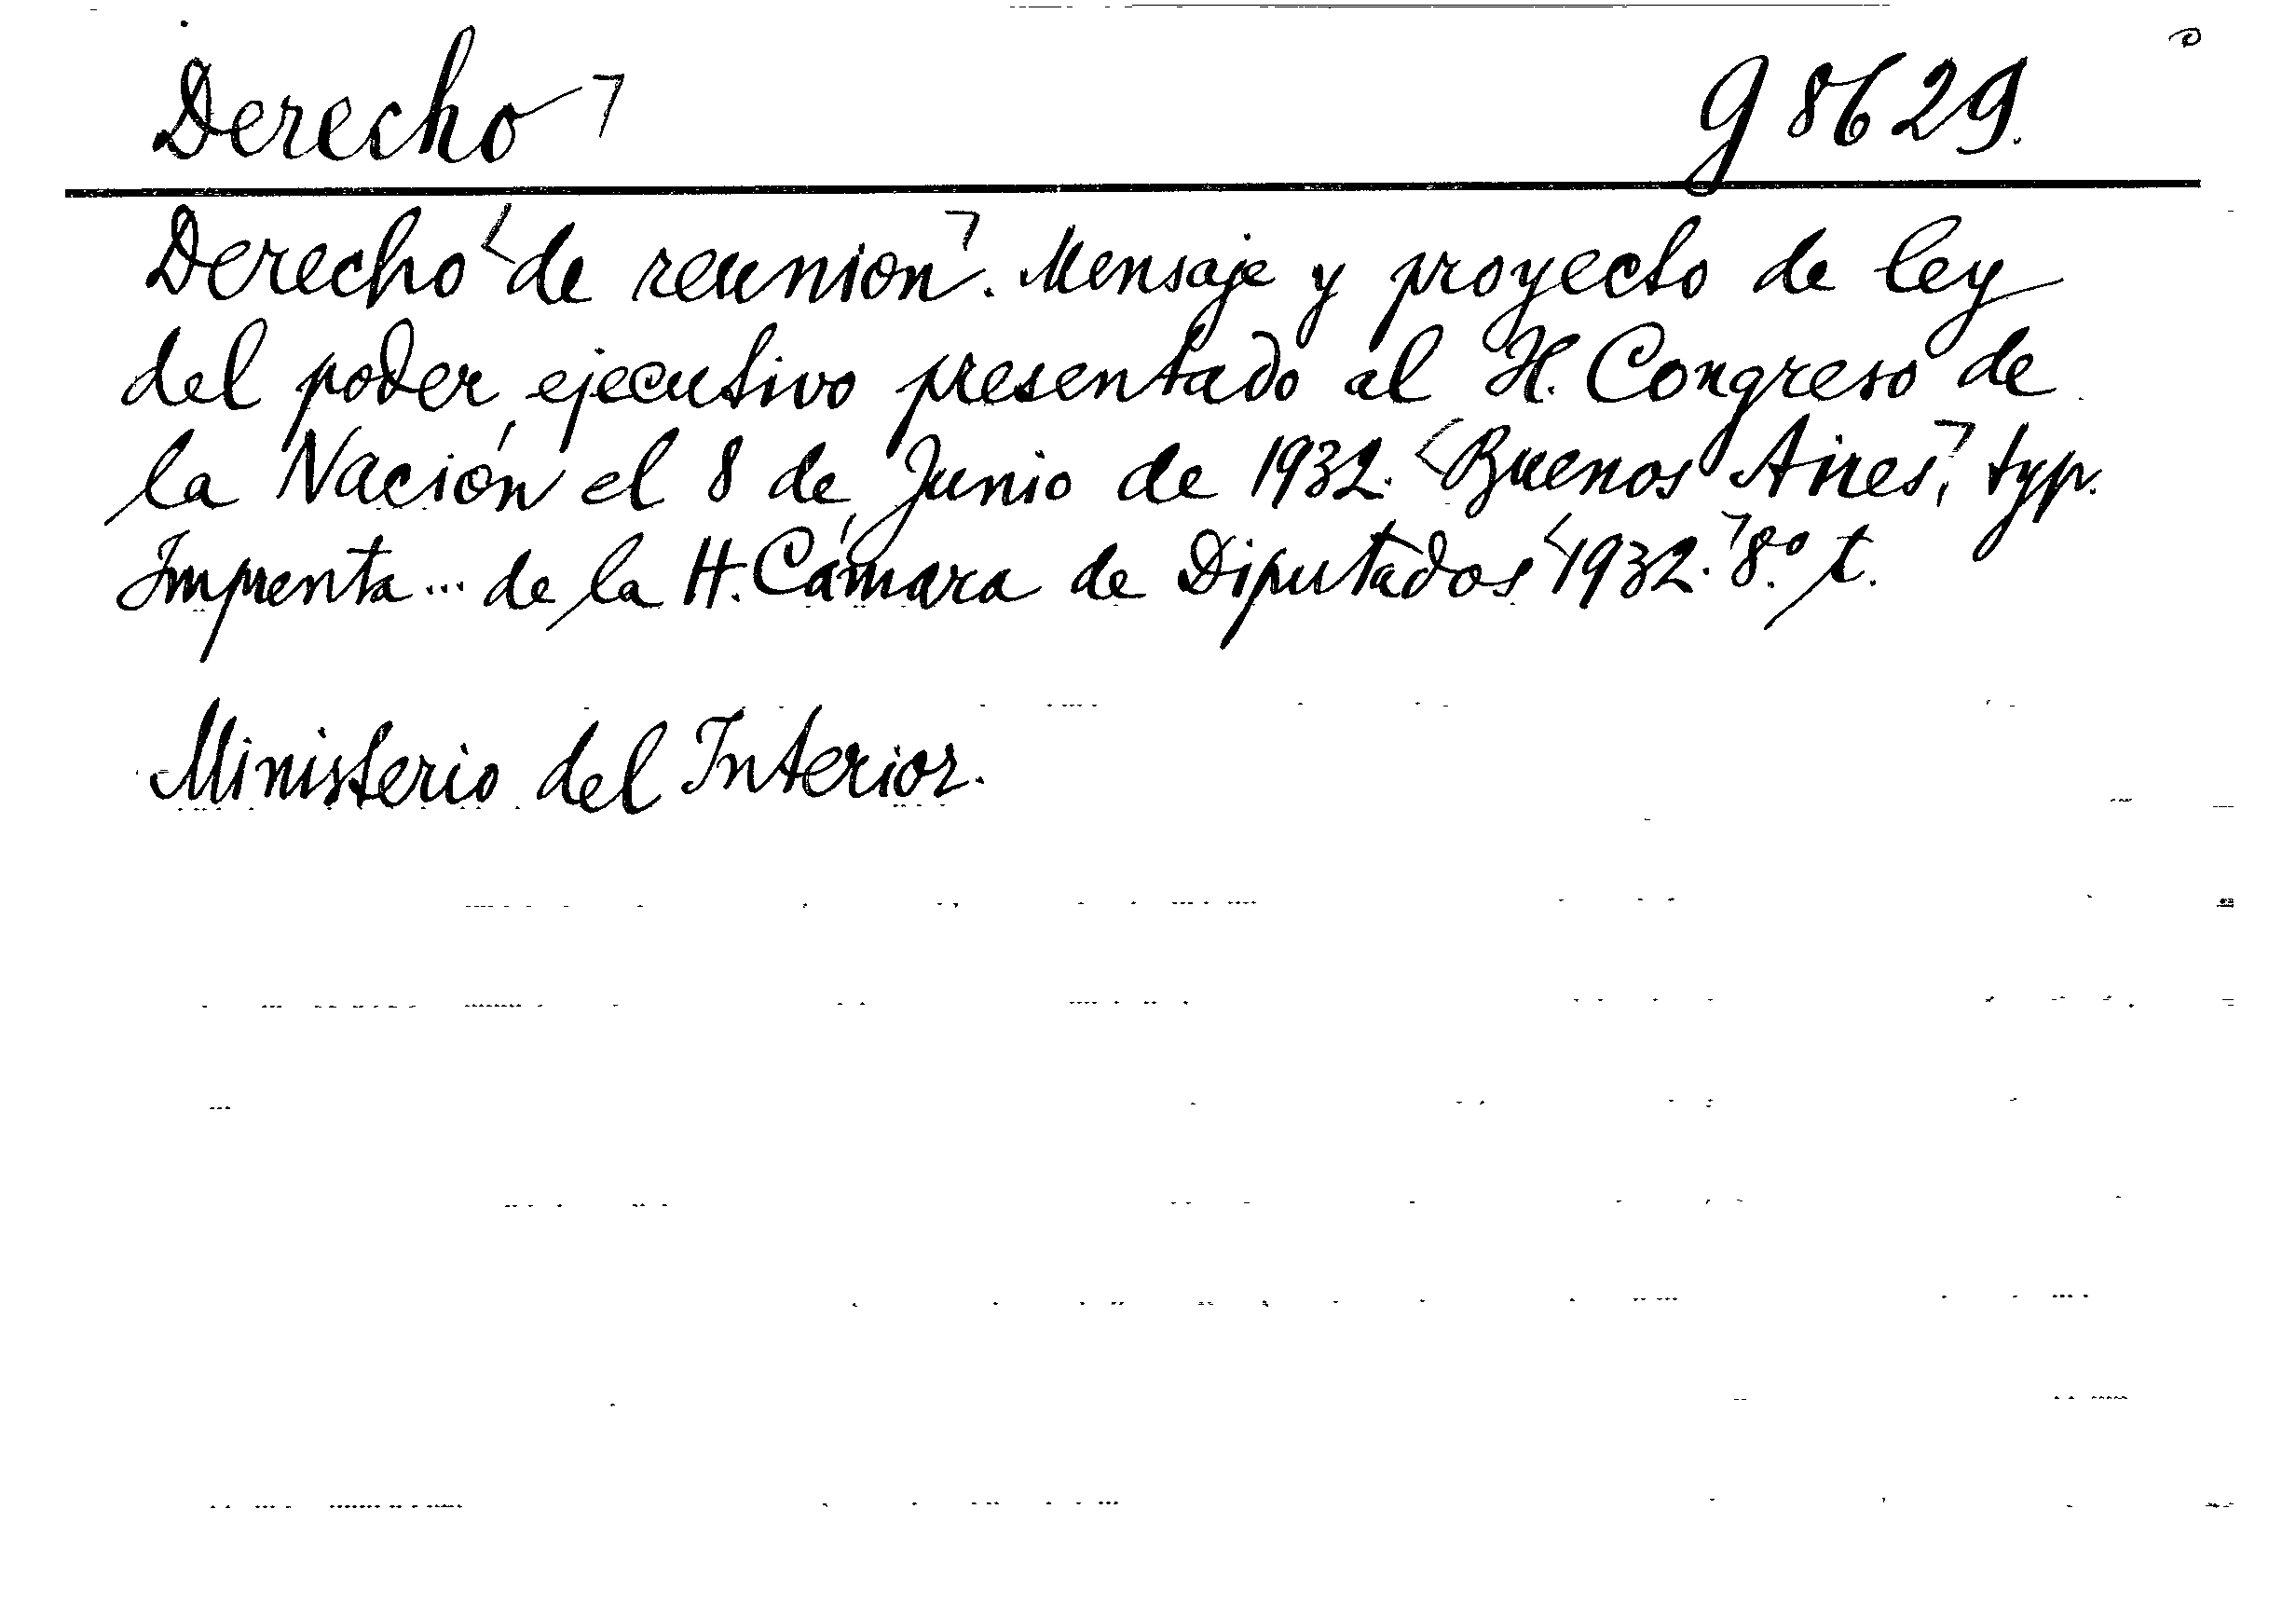 Derecho g 8629.
Derecho de reunion. Mensaje y proyecto de ley
del poder ejecutivo presentado al H. Congreso de
la Nación el 8 de Junio de 1932. Buenos Aires, typ.
Imprenta... de la H. Cámara de Diputados 1932. 8.º t.
Ministerio del Interior.